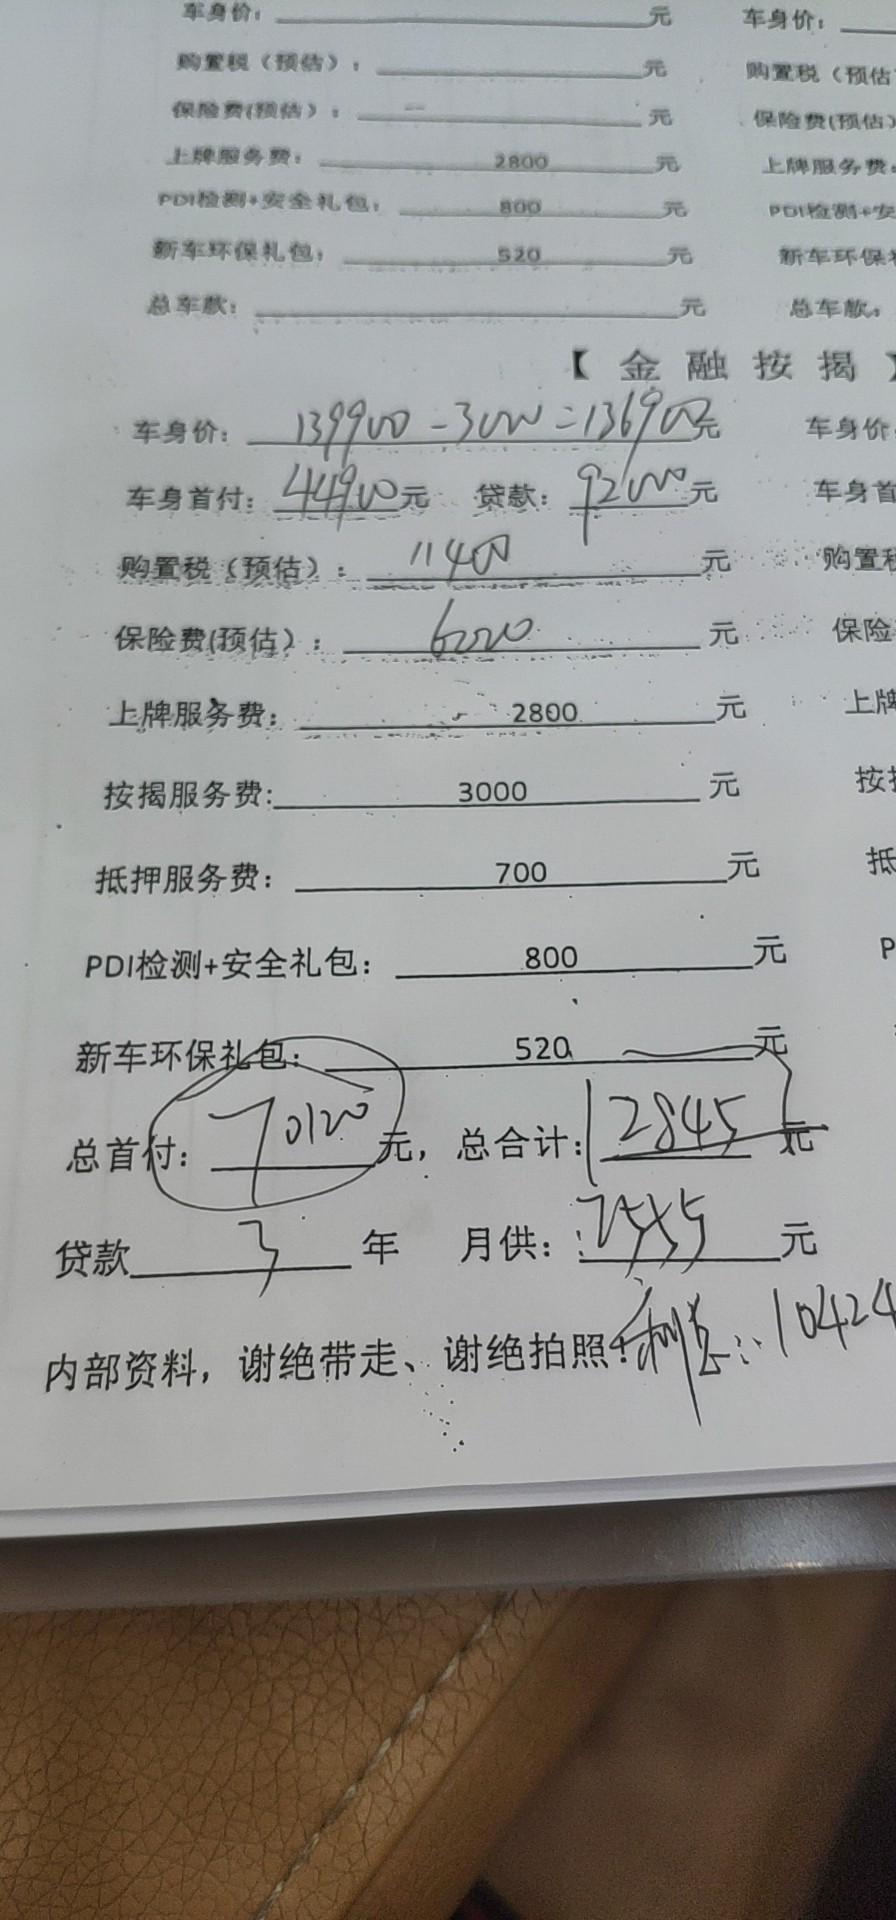 车身价：元 车身价：
购置税（预估）：元 购置税（预估
保险费(预估）：元 保险费(预估）
上牌服务费：2800元 上牌服务费：
PDI检测+安全礼包：800元 PDI检测+安
新车环保礼包：520元 新车环保礼
总车款：元 总车款：
【金融按揭】
车身价：139900-3000=136900元 车身价：
车身首付：44900元 贷款：92000元 车身首
购置税（预估）：11400元 购置税
保险费(预估）：6000元 保险
上牌服务费：2800元 上牌
按揭服务费:3000元 按揭
抵押服务费：700元 抵
PDI检测+安全礼包：800元 P
新车环保礼包：520元
总首付：70120元，总合计：2845元
贷款3年 月供：元
内部资料，谢绝带走、谢绝拍照！利息：10424